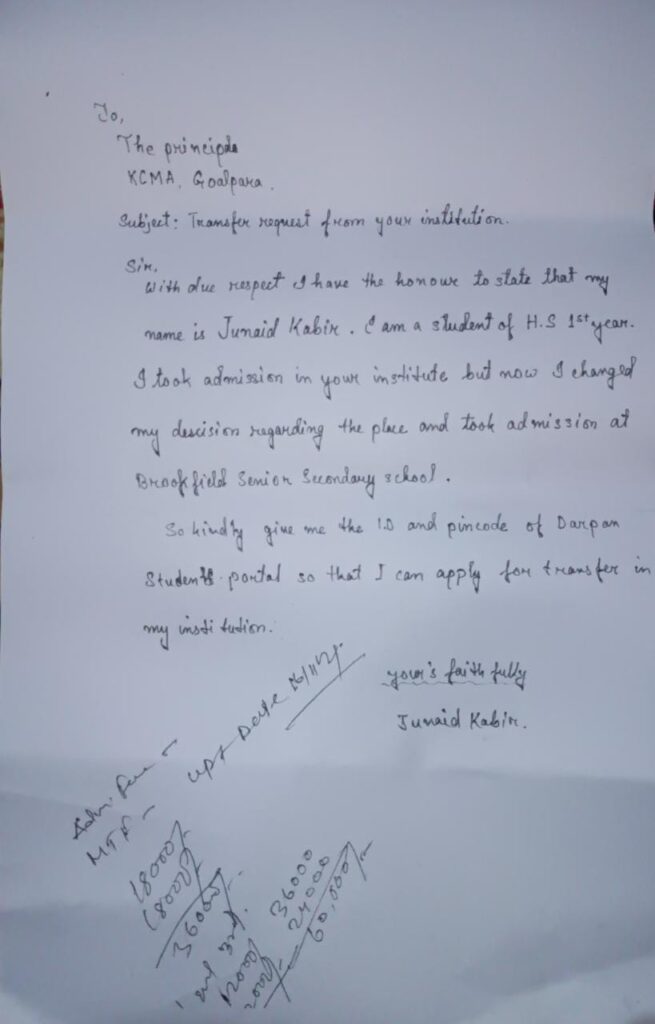 To,
The principle
KCMA, Goalpara.
Subject: Transfer request from your institution.
Sir,
With due respect I have the honour to state that my
name is Junaid Kabir. I am a student of H.S 1st year.
I took admission in your institute but now I changed
my descision regarding the place and took admission at
Brookfield Senior Secondary school.
So kindly give me the I.D and pincode of Darpan
Students portal so that I can apply for transfer in
my institution.
your's faithfully
Junaid Kabir.
Adm. Fee –
18000/-
18000/-
36000/-
36000
24000
60,000/-